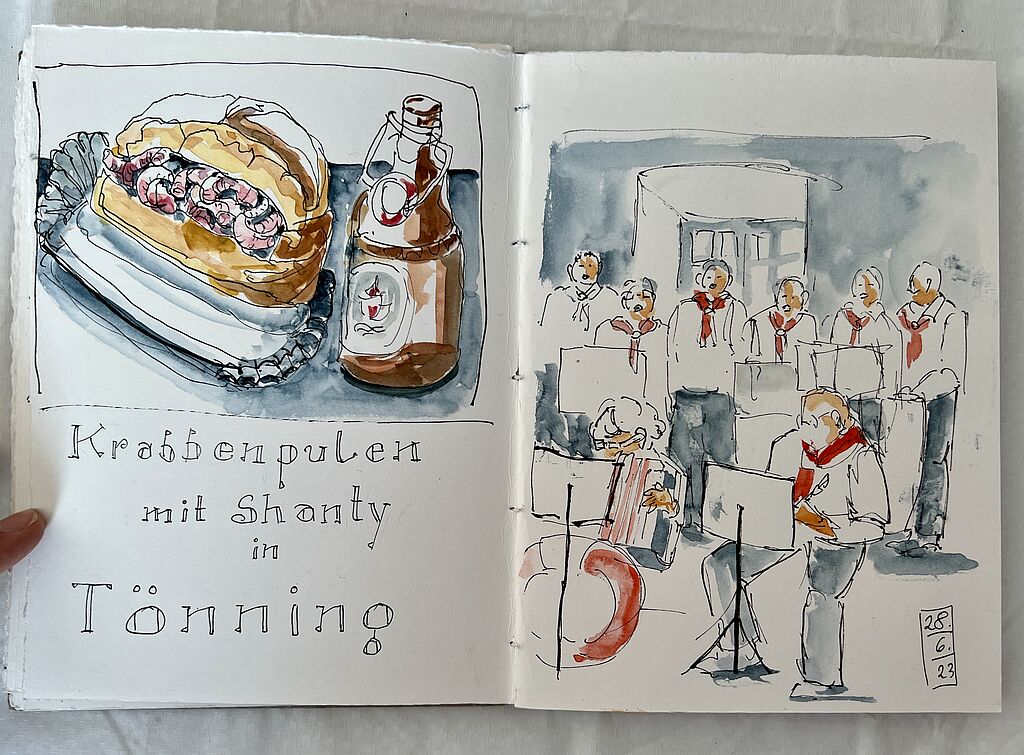 Krabbenpulen
mit Shanty
in
Tönning
28.
6.
23